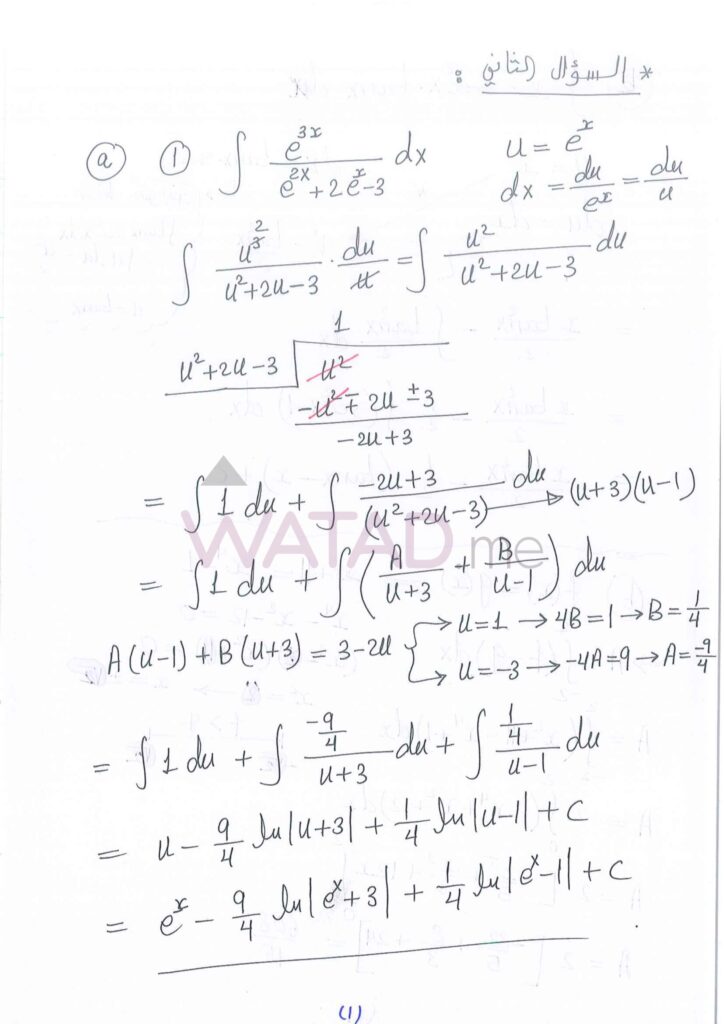 * السؤال الثاني :
ⓐ ① ∫ e^{3x} / (e^{2x} + 2e^x - 3) dx    u = e^x
dx = du/e^x = du/u
∫ u^{3̸ 2} / (u² + 2u - 3) · du/u̸ = ∫ u² / (u² + 2u - 3) du
1
u² + 2u - 3 | u²
-u² ∓ 2u ± 3
-2u + 3
= ∫ 1 du + ∫ (-2u + 3) / (u² + 2u - 3) du → (u+3)(u-1)
WATAD.me
= ∫ 1 du + ∫ ( A/(u+3) + B/(u-1) ) du
A(u-1) + B(u+3) = 3 - 2u { → u = 1 → 4B = 1 → B = 1/4
→ u = -3 → -4A = 9 → A = -9/4
= ∫ 1 du + ∫ (-9/4)/(u+3) du + ∫ (1/4)/(u-1) du
= u - 9/4 ln|u+3| + 1/4 ln|u-1| + C
= e^x - 9/4 ln|e^x + 3| + 1/4 ln|e^x - 1| + C
(1)